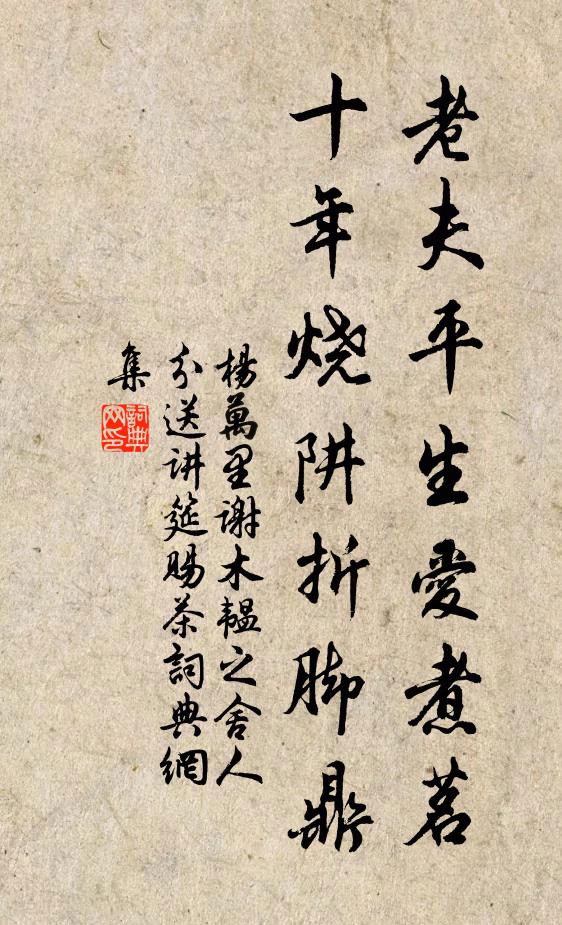 老夫平生愛煮茗
十年烧阱折脚鼎
楊萬里谢木韞之舍人
分送讲筵賜茶詞典網
集
詞典
网印